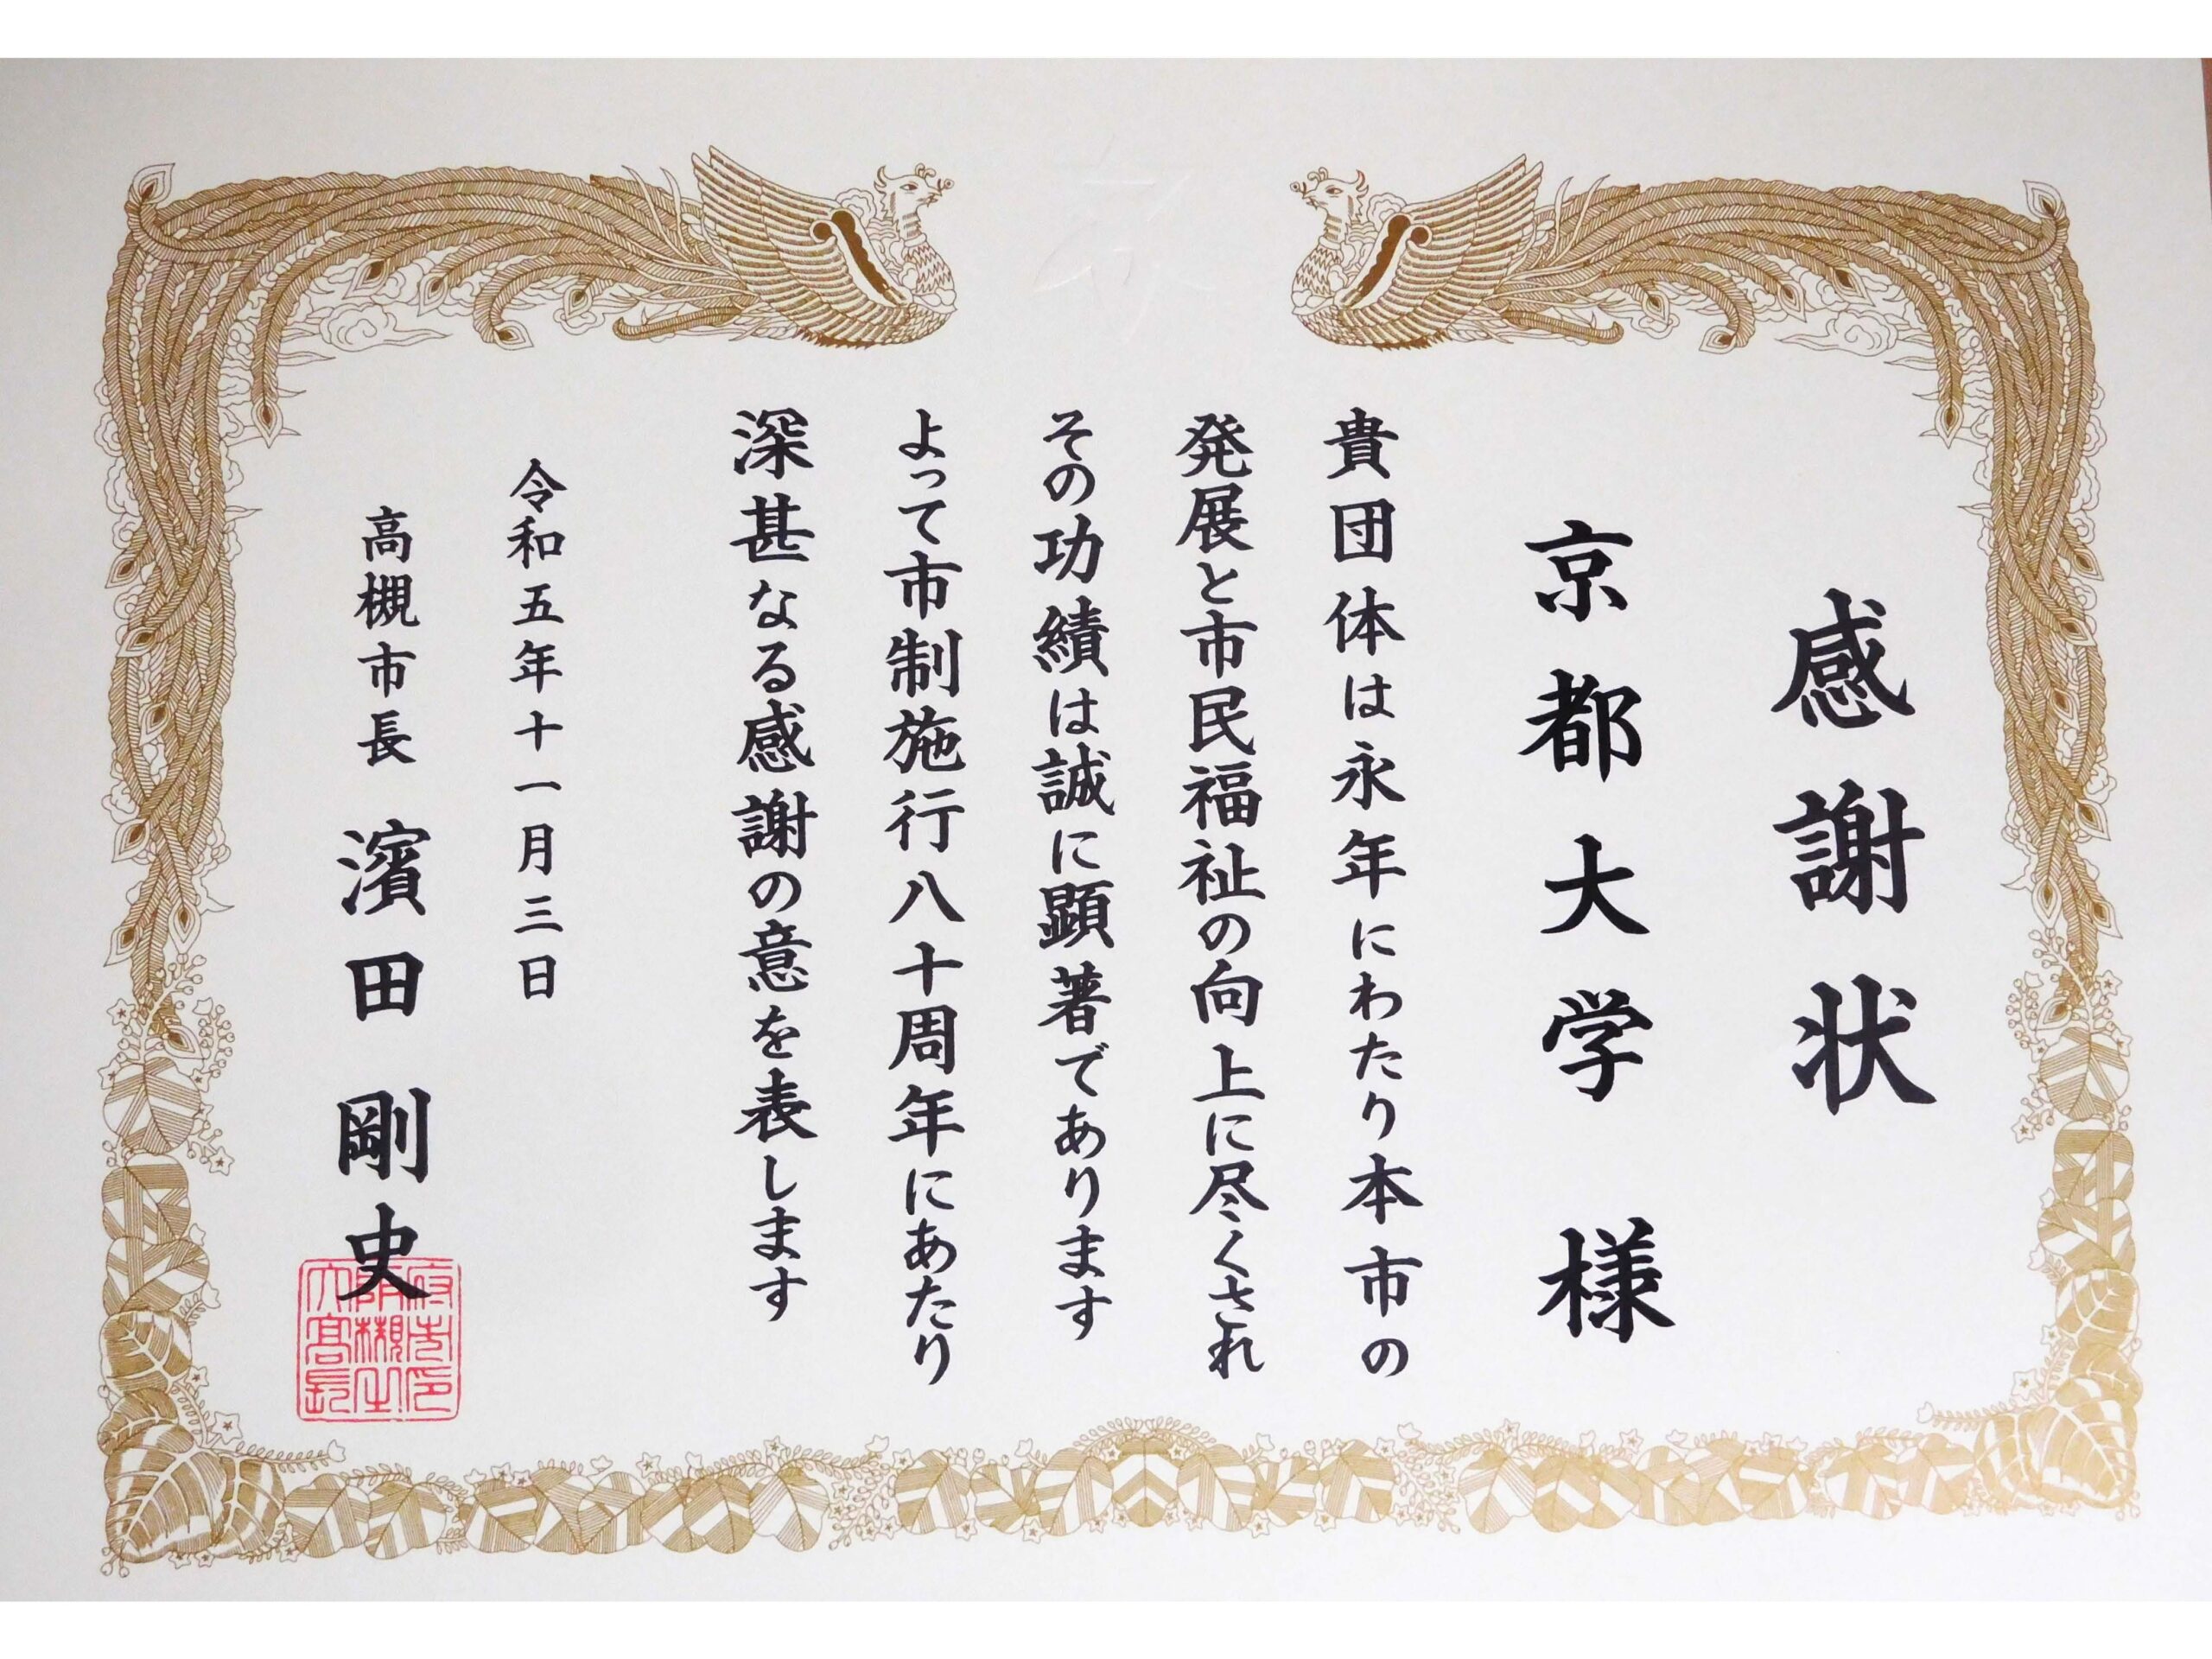 感謝状
京都大学 様
貴団体は永年にわたり本市の
発展と市民福祉の向上に尽くされ
その功績は誠に顕著であります
よって市制施行八十周年にあたり
深甚なる感謝の意を表します
令和五年十一月三日
高槻市長 濱田剛史